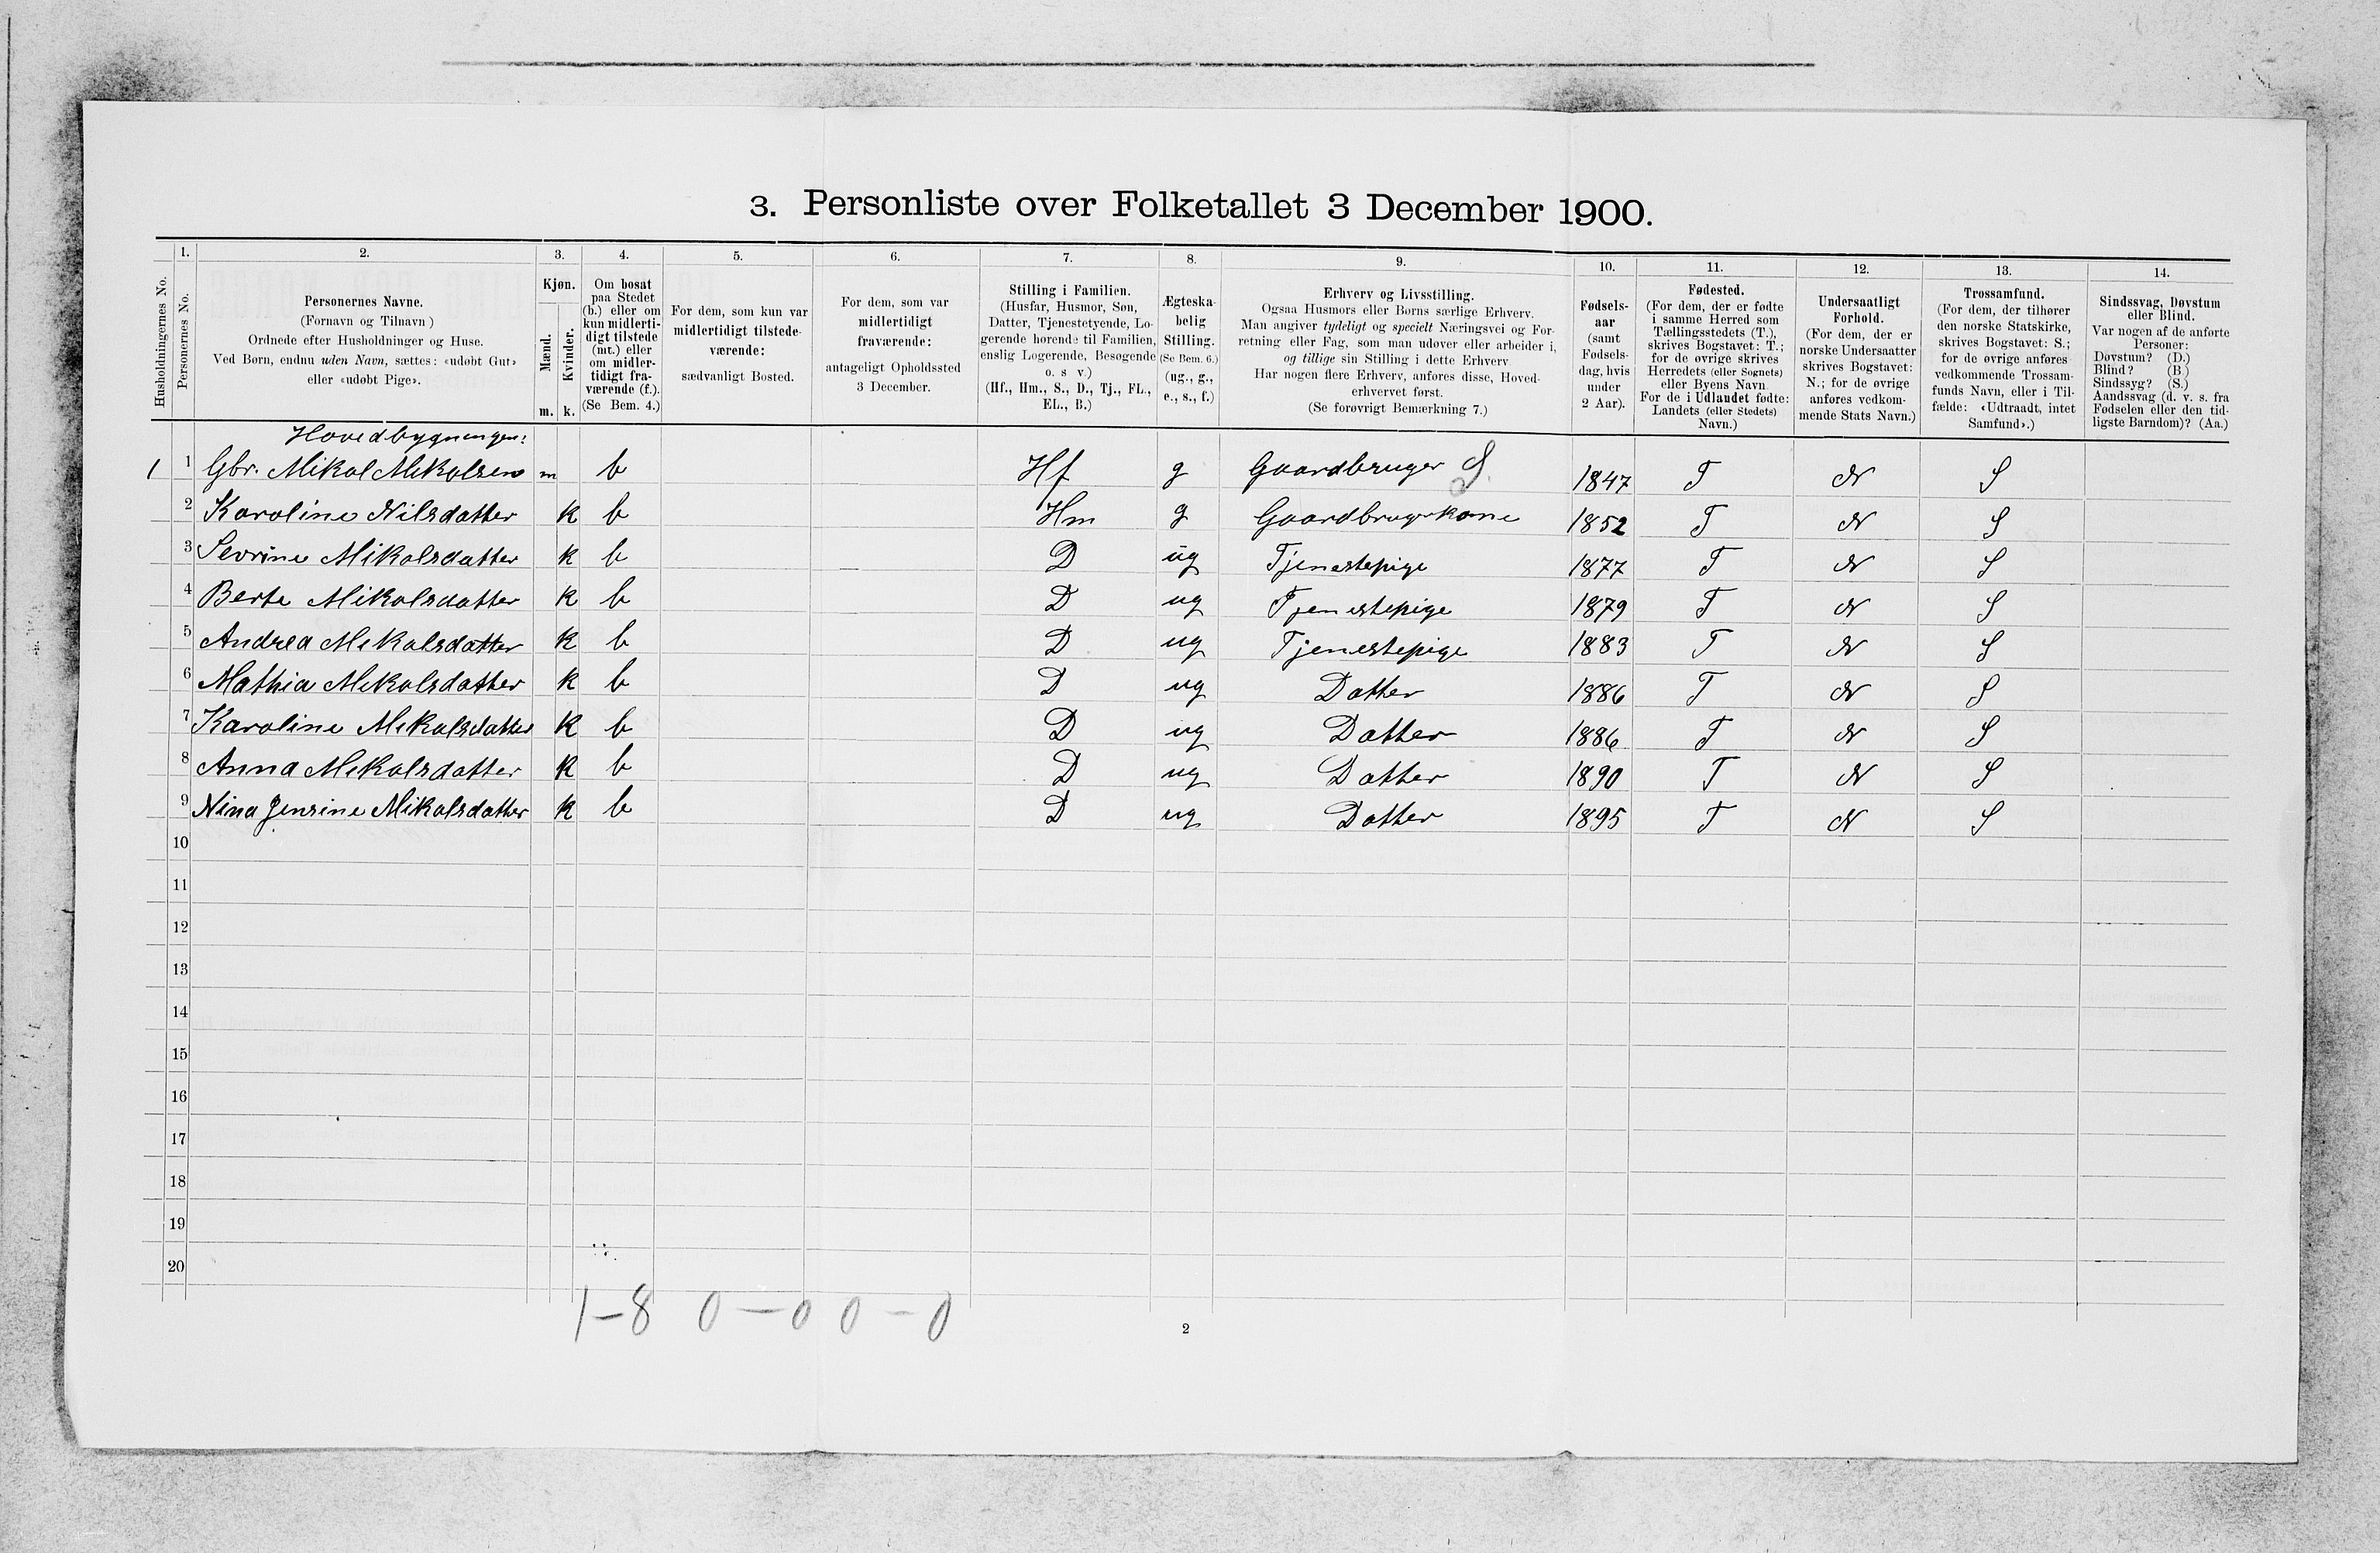 3. Personliste over Folketallet 3 December 1900.
1. 2. 3. 4. 5. 6. 7. 8. 9. 10. 11. 12. 13. 14.
Husholdningernes No.
Personernes No.
Personernes Navne.
(Fornavn og Tilnavn )
Ordnede efter Husholdninger og Huse.
Ved Børn, endnu uden Navn, sættes: «udøbt Gut»
eller «udøbt Pige».
Kjøn.
Mænd.
Kvinder.
m. k.
Om bosat
paa Stedet
(b.) eller om
kun midlerti-
digt tilstede
(mt.) eller
om midler-
tidigt fra-
værende (f.).
(Se Bem. 4.)
For dem, som kun var
midlertidigt tilstede-
værende:
sædvanligt Bosted.
For dem, som var
midlertidigt
fraværende:
antageligt Opholdssted
3 December.
Stilling i Familien.
(Husfar, Husmor, Søn,
Datter, Tjenestetyende, Lo-
gerende hørende til Familien,
enslig Logerende, Besøgende
o. s v.)
(Hf., Hm., S., D., Tj., FL.,
EL., B.)
Ægteska-
belig
Stilling.
(Se Bem. 6.)
(ug., g.,
e., s., f.)
Erhverv og Livsstilling.
Ogsaa Husmors eller Børns særlige Erhverv.
Man angiver tydeligt og specielt Næringsvei og For-
retning eller Fag, som man udøver eller arbeider i,
og tillige sin Stilling i dette Erhverv
Har nogen flere Erhverv, anføres disse, Hoved-
erhvervet først.
(Se forøvrigt Bemærkning 7.)
Fødsels-
aar
(samt
Fødsels-
dag, hvis
under
2 Aar).
Fødested.
(For dem, der er fødte
i samme Herred som
Tællingsstedets (T.),
skrives Bogstavet: T.;
for de øvrige skrives
Herredets (eller Sognets)
eller Byens Navn
For de i Udlandet fødte:
Landets (eller Stedets)
Navn.)
Undersaatligt
Forhold.
(For dem, der er
norske Undersaatter
skrives Bogstavet:
N.; for de øvrige
anføres vedkom-
mende Stats Navn.)
Trossamfund.
(For dem, der tilhører
den norske Statskirke,
skrives Bogstavet: S.;
for de øvrige anføres
vedkommende Trossam-
funds Navn, eller i Til-
fælde: «Udtraadt, intet
Samfund».)
Sindssvag, Døvstum
eller Blind.
Var nogen af de anførte
Personer:
Døvstum? (D.)
Blind? (B.)
Sindssyg? (S.)
Aandssvag (d. v. s. fra
Fødselen eller den tid-
ligste Barndom)? (Aa.)
Hovedbygningen:
1 1 Gbr. Mikal Mikalsen m b Hf g Gaardbruger S. 1847 T N S
2 Karoline Nilsdatter k b Hm g Gaardbrugerkone 1852 T N S
3 Sevrine Mikalsdatter k b D ug Tjenestepige 1877 T N S
4 Berte Mikalsdatter k b D ug Tjenestepige 1879 T N S
5 Andrea Mikalsdatter k b D ug Tjenestepige 1883 T N S
6 Mathia Mikalsdatter k b D ug Datter 1886 T N S
7 Karoline Mikalsdatter k b D ug Datter 1886 T N S
8 Anna Mikalsdatter k b D ug Datter 1890 T N S
9 Nina Jensine Mikalsdatter k b D ug Datter 1895 T N S
10
11
12
13
14
15
16
17
18
19
20
1-8 0-0 0-0
2